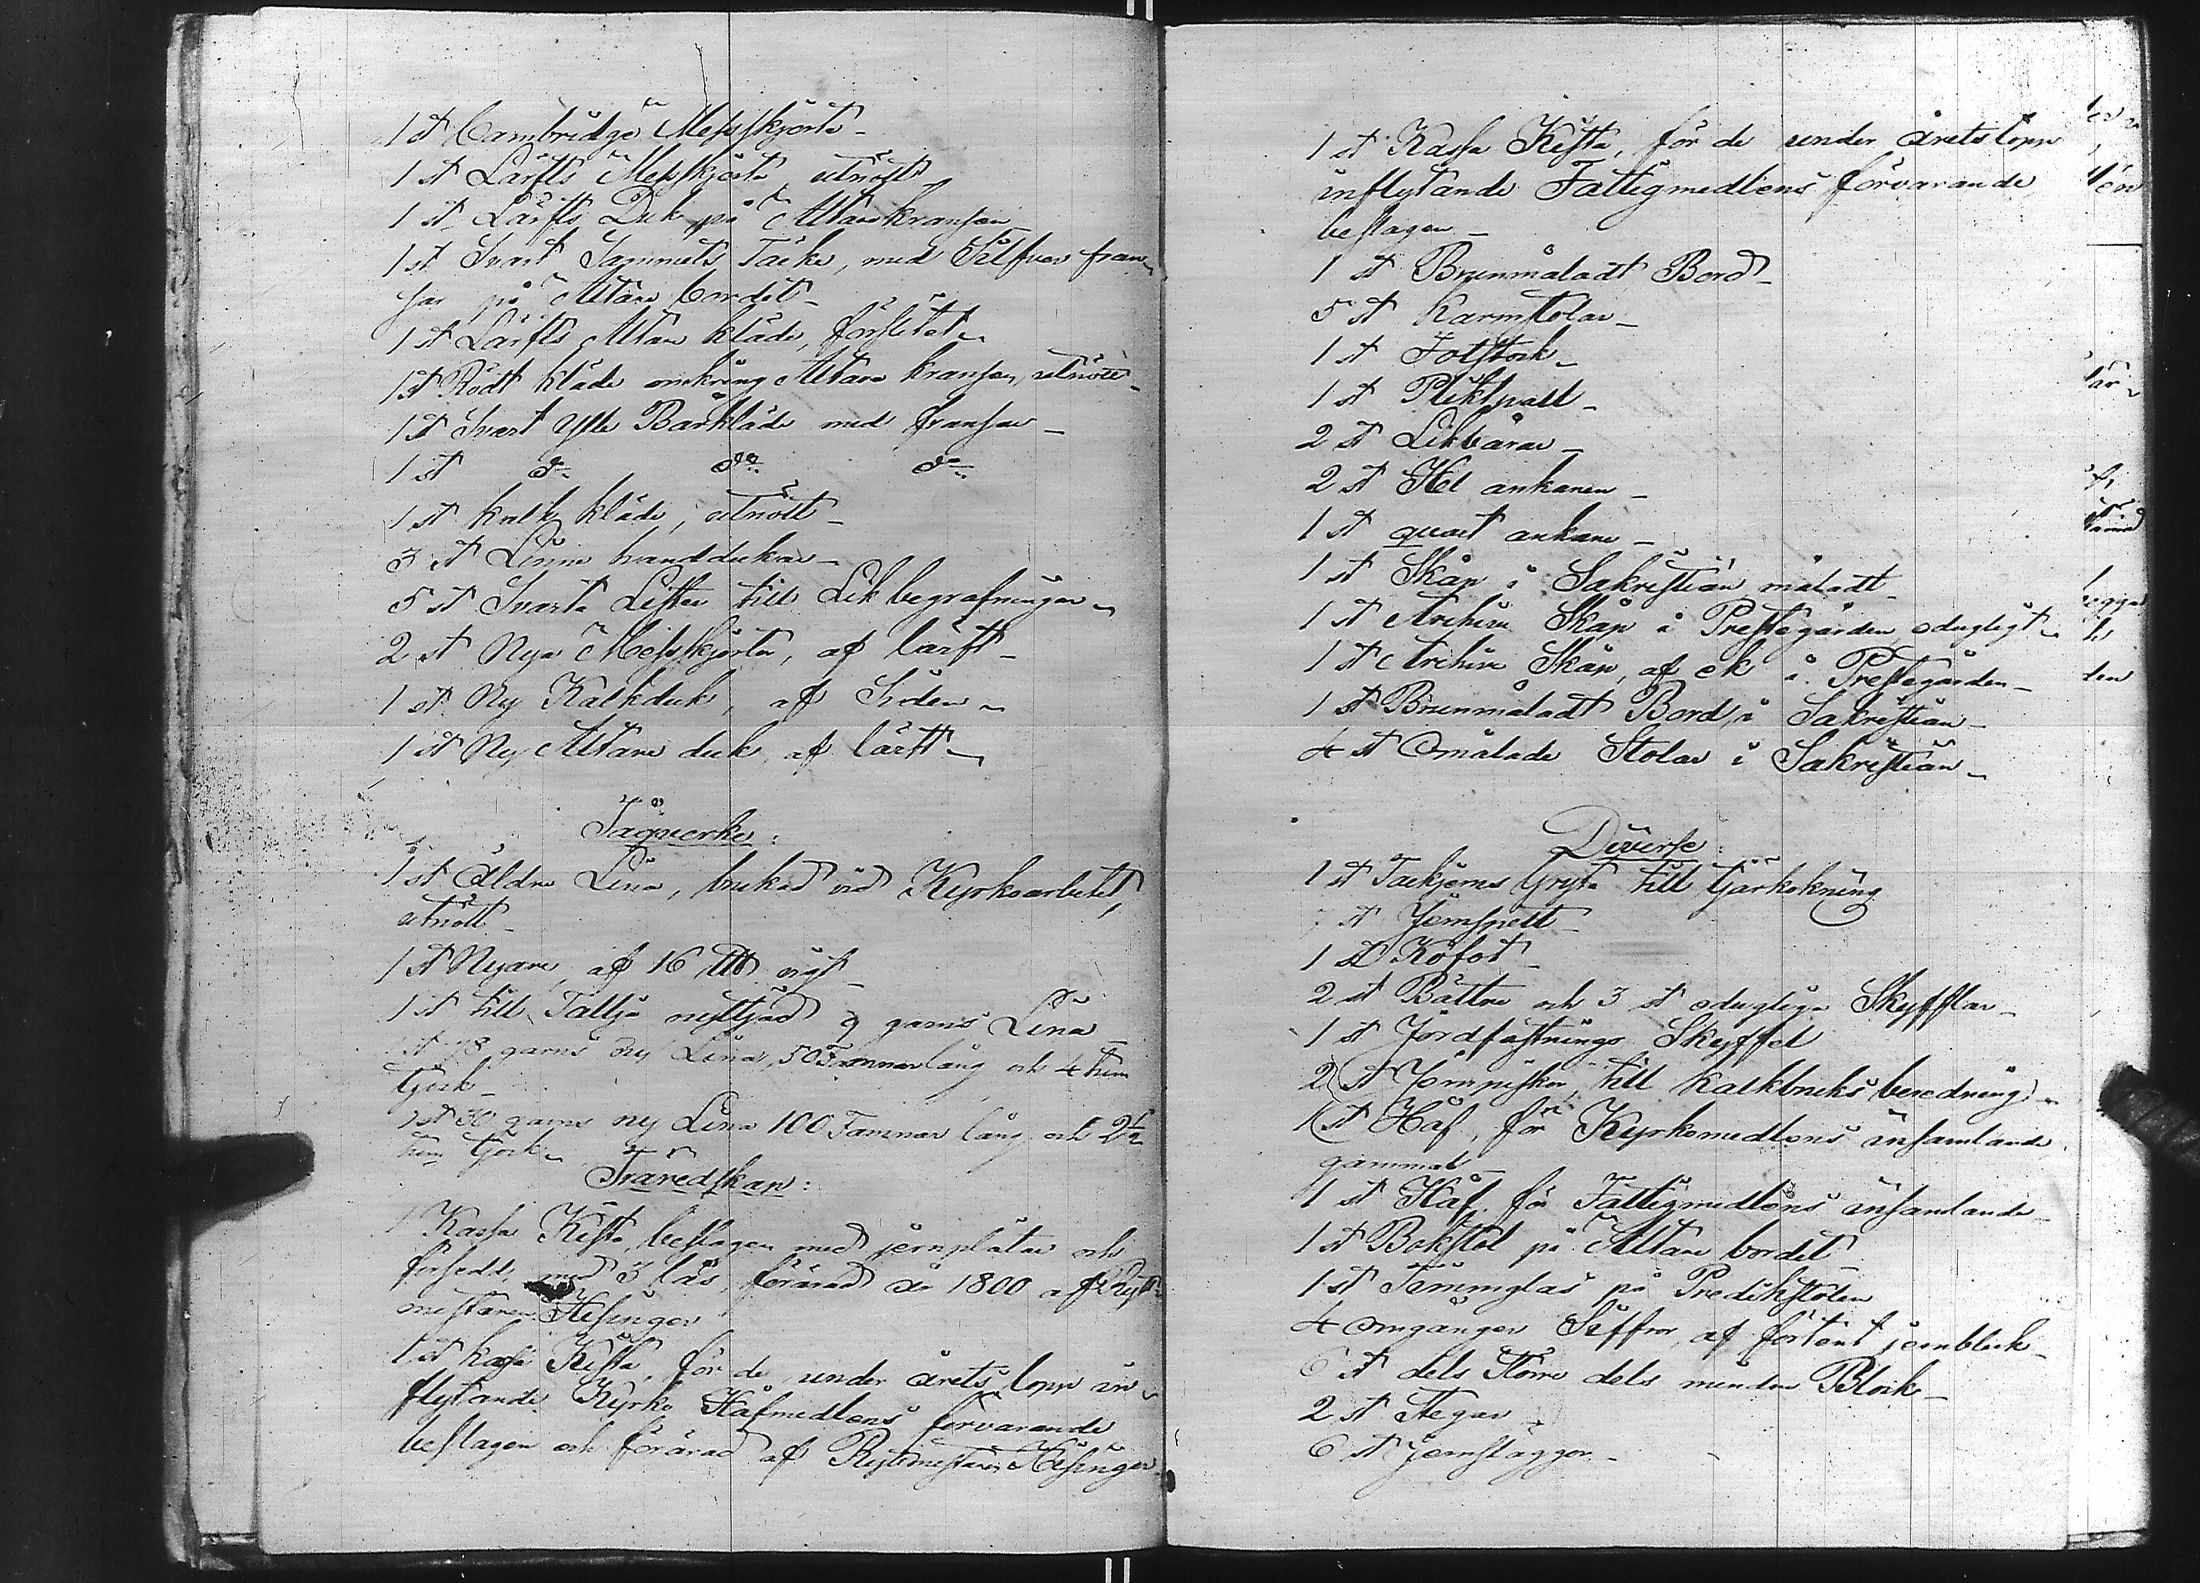 1 st Cambridge Messskjorta
1 st Lärfts Messskjorta utnött
1 st Lärfts Duk på Altarekransen
1 st Svart Sammets Täcke, med Silfver fran-
sar på Altare bordet
1 st Lärfts Altare kläde, förslitet
1 st Rödt kläde omkring Altare kransen, utnött
1 st Svart Ylle Bårkläde med fransar
1 st do do do
1 st kalk kläde, utnött
3 st Linne handdukar
5 st Svarta Lister till Lik begrafningar
2 st Nya Messskjortor, af lärft
1 st Ny Kalkduk, af Siden
1 st Ny Altare duk, af lärft
Tågverke:
1 st äldre Lina, brukad vid Kyrkoarbetet,
utnött
1 st Nyare, af 16 ℔ vigt
1 st till Tallja nyttjad 9 garns Lina
1 st 78 garns ny Lina, 50 Famnar lång och 4 tum
tjock
1 st 30 garns ny Lina 100 Famnar lång och 2½
tum tjock
Träredskap:
1 Kassa Kista, beslagen med jernplåtar och
försedd med 3 lås, förärad år 1800 af Rytt-
mästaren Hisinger
1 st kassa Kista, för de under årets lopp in-
flytande Kyrko Håfmedlens förvarande
beslagen och förärad af Ryttmästaren Hisinger
1 st Kassa Kista, för de under årets lopp
inflytande Fattigmedlens förvarande
beslagen
1 st Brunmåladt Bord
5 st Karmstolar
1 st Fotstock
1 st Pliktpall
2 st Likbårar
2 st Hel ankaren
1 st quart ankare
1 st Skåp i Sakristian måladt
1 st Archiv Skåp i Prestegården, odugligt
1 st Archiv Skåp, af ek i Prestegården
1 st Brunmåladt Bord, i Sakristian
4 st Omålade Stolar i Sakristian
Diverse:
1 st Tackjerns Gryta till tjärkokning
7 st Jernspett
1 st Kofot
2 st Bättre och 3 st odugliga Skyfflar
1 st Jordfästnings Skyffel
2 st till kalkbruks beredning
1 st Håf, för Kyrkomedlens insamlande
gammal
1 st Håf för Fattigmedlens insamlande
1 st Bokstol på Altare bordet
1 st Timmglas på Predikstolen
4 omgångor Siffror, af förtent jernbleck
6 st dels större dels mindre Block
2 st Stegar
6 st Jernsläggor